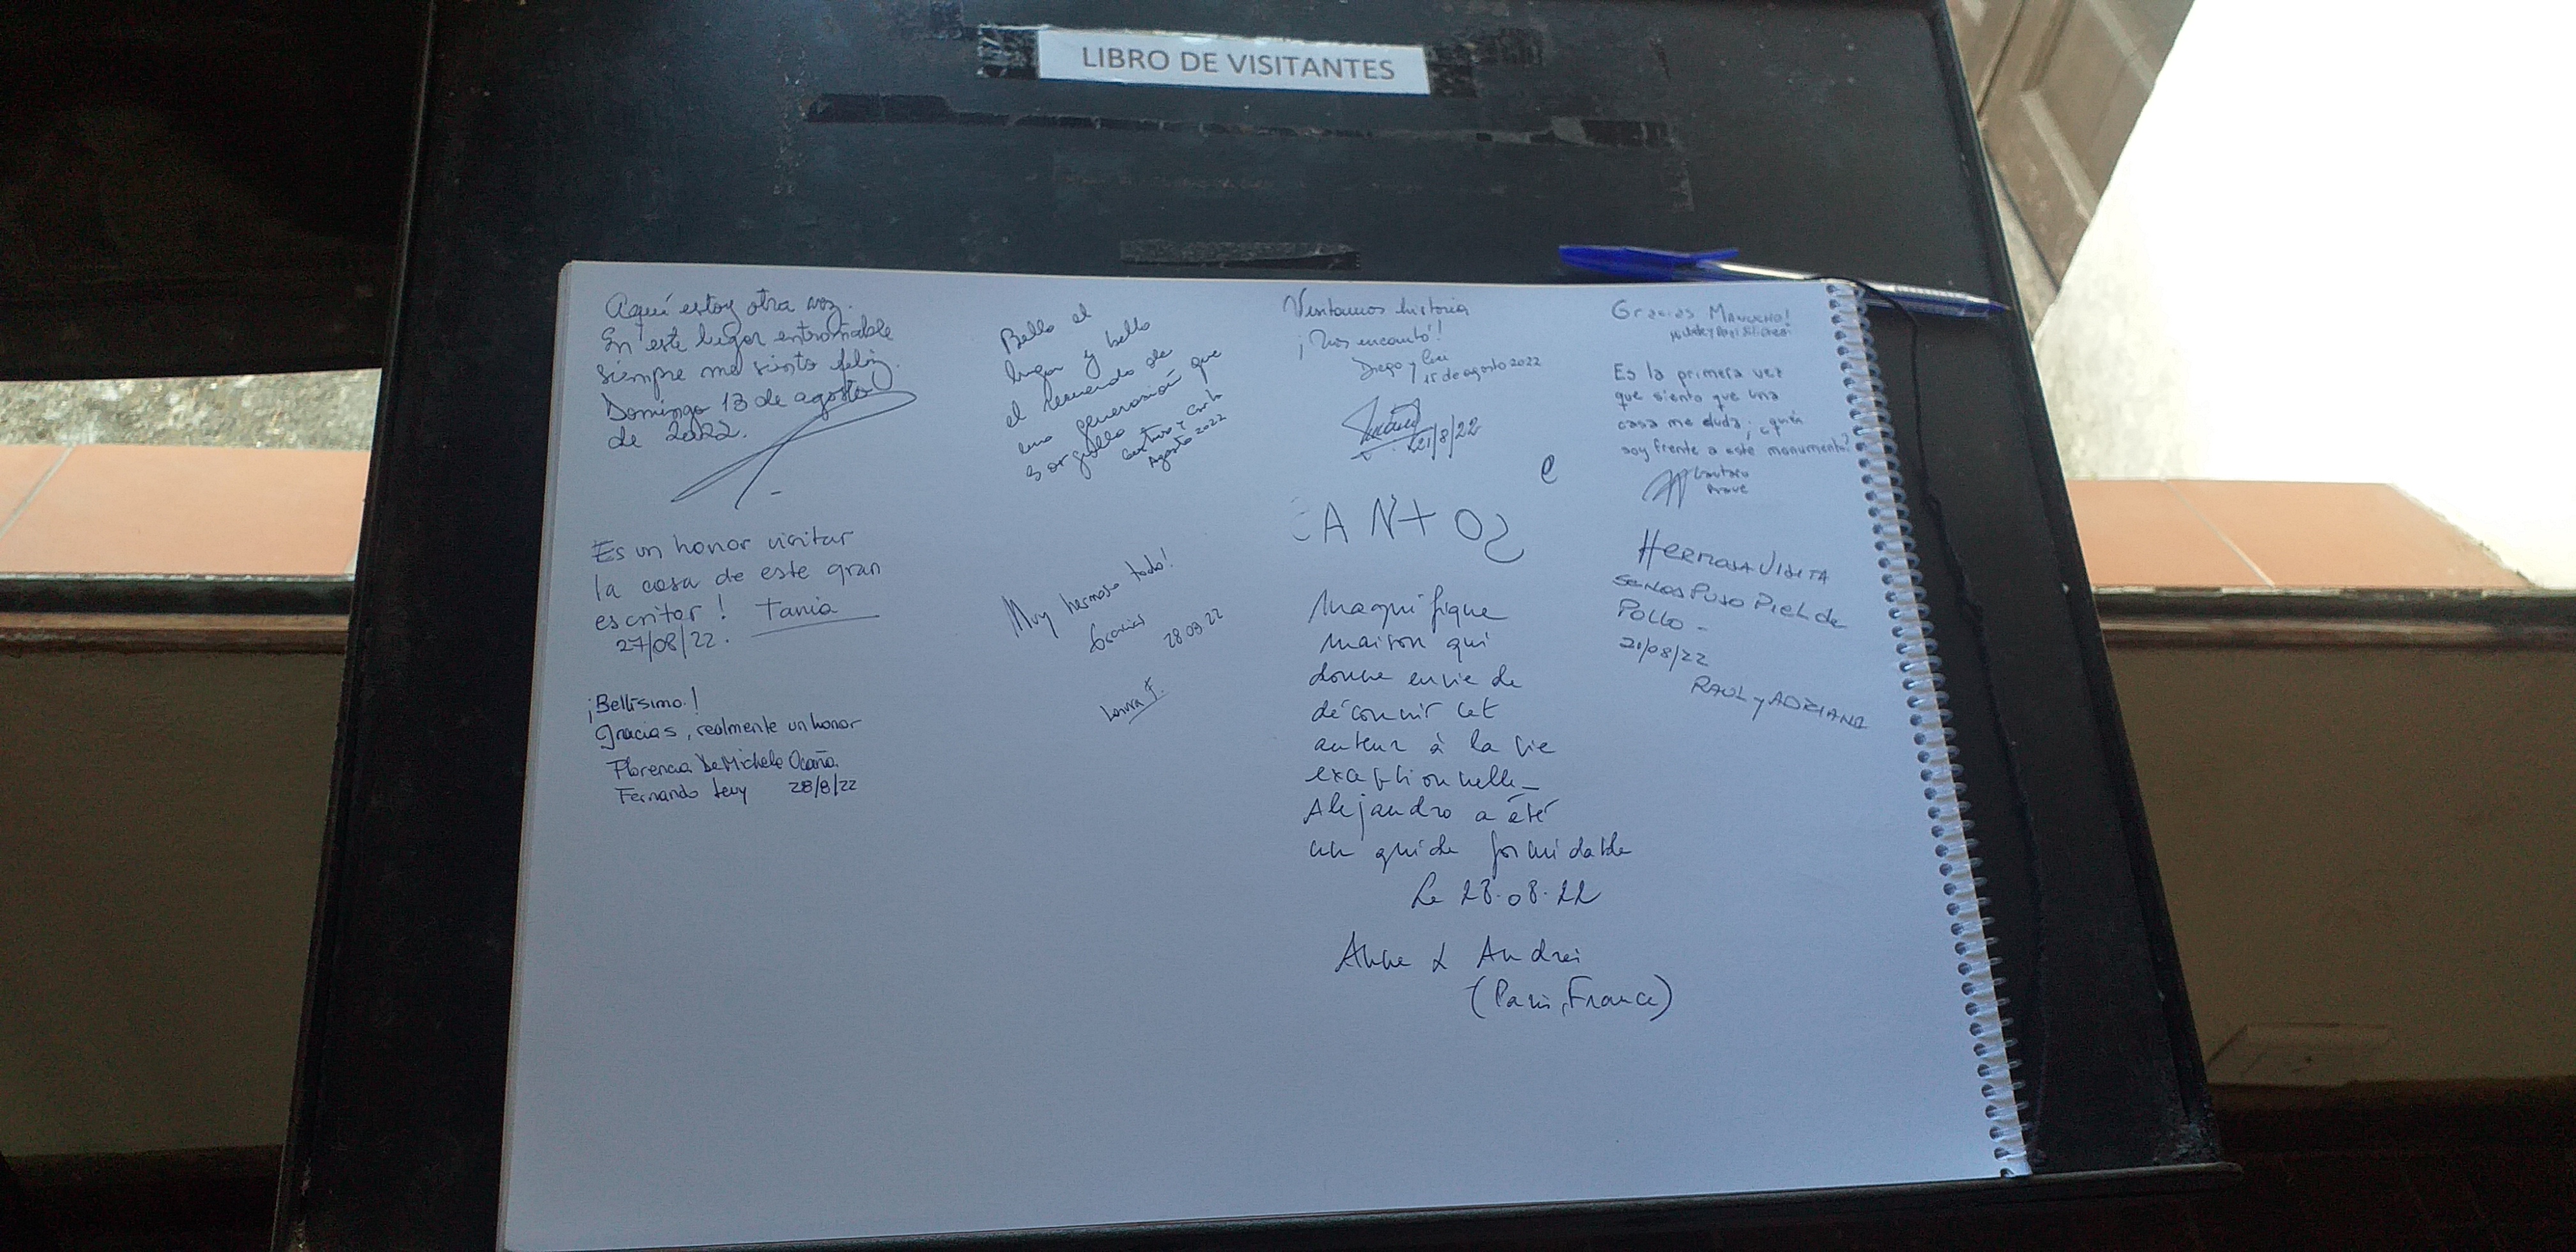 LIBRO DE VISITANTES
Aquí estoy otra vez.
En este lugar entrañable
siempre me siento feliz.
Domingo 13 de agosto
de 2022.
Es un honor visitar
la casa de este gran
escritor! Tania
27/08/22.
¡Bellísimo!
Gracias, realmente un honor
Florencia De Michele Ocaña
Fernando Levy 28/8/22
Bello el
lugar y bello
el recuerdo de
una generación que
es orgullo
Agosto 2022
Muy hermoso todo!
Gracias 28 08 22
Laura F.
Visitamos historia
¡Nos encantó!!
Diego y
15 de agosto 2022
21/8/22
e
SANTOS
Magnifique
maison qui
donne envie de
découvrir cet
auteur à la vie
exceptionnelle_
Alejandro a été
un guide formidable
Le 28.08.22
Anne & Andrei
(Paris, France)
Gracias Manucho!
Es la primera vez
que siento que una
casa me duda; ¿quién
soy frente a este monumento?
Lautaro
HERMOSA VISITA
SE NOS PUSO PIEL de
POLLO -
21/08/22
RAUL y ADRIANA